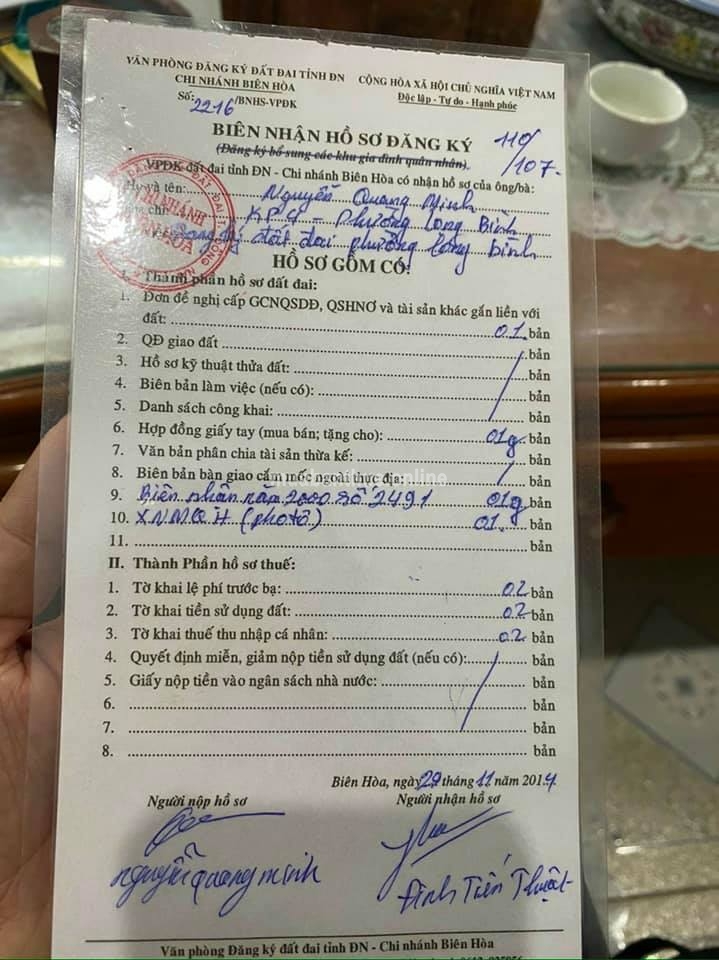 VĂN PHÒNG ĐĂNG KÝ ĐẤT ĐAI TỈNH ĐN
CHI NHÁNH BIÊN HÒA
Số: 2216/BNHS-VPĐK
CỘNG HÒA XÃ HỘI CHỦ NGHĨA VIỆT NAM
Độc lập - Tự do - Hạnh phúc
BIÊN NHẬN HỒ SƠ ĐĂNG KÝ
110/107.
(Đăng ký bổ sung các khu gia đình quân nhân).
VPĐK đất đai tỉnh ĐN - Chi nhánh Biên Hòa có nhận hồ sơ của ông/bà:
Họ và tên: Nguyễn Quang Minh
chỉ: KP4 - Phường Long Bình
đất đai phường long bình
HỒ SƠ GỒM CÓ:
I. Thành phần hồ sơ đất đai:
1. Đơn đề nghị cấp GCNQSDĐ, QSHNƠ và tài sản khác gắn liền với
đất: 01 bản
2. QĐ giao đất bản
3. Hồ sơ kỹ thuật thửa đất: bản
4. Biên bản làm việc (nếu có): bản
5. Danh sách công khai: bản
6. Hợp đồng giấy tay (mua bán; tặng cho): 01g bản
7. Văn bản phân chia tài sản thừa kế: bản
8. Biên bản bàn giao cắm mốc ngoài thực địa: bản
9. Biên nhận năm 2000 số 2491 01g bản
10. XNMQH (phôtô) 01. bản
11. bản
II. Thành Phần hồ sơ thuế:
1. Tờ khai lệ phí trước bạ: 02 bản
2. Tờ khai tiền sử dụng đất: 02 bản
3. Tờ khai thuế thu nhập cá nhân: 02 bản
4. Quyết định miễn, giảm nộp tiền sử dụng đất (nếu có): bản
5. Giấy nộp tiền vào ngân sách nhà nước: bản
6. bản
7. bản
8. bản
Biên Hòa, ngày 29 tháng 11 năm 2014
Người nộp hồ sơ
Người nhận hồ sơ
nguyễn quang minh
Đinh Tiến Thuật
Văn phòng Đăng ký đất đai tỉnh ĐN - Chi nhánh Biên Hòa